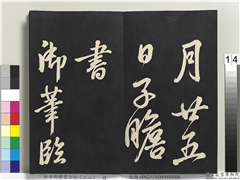 月廿五
日子瞻
書
御筆臨
14